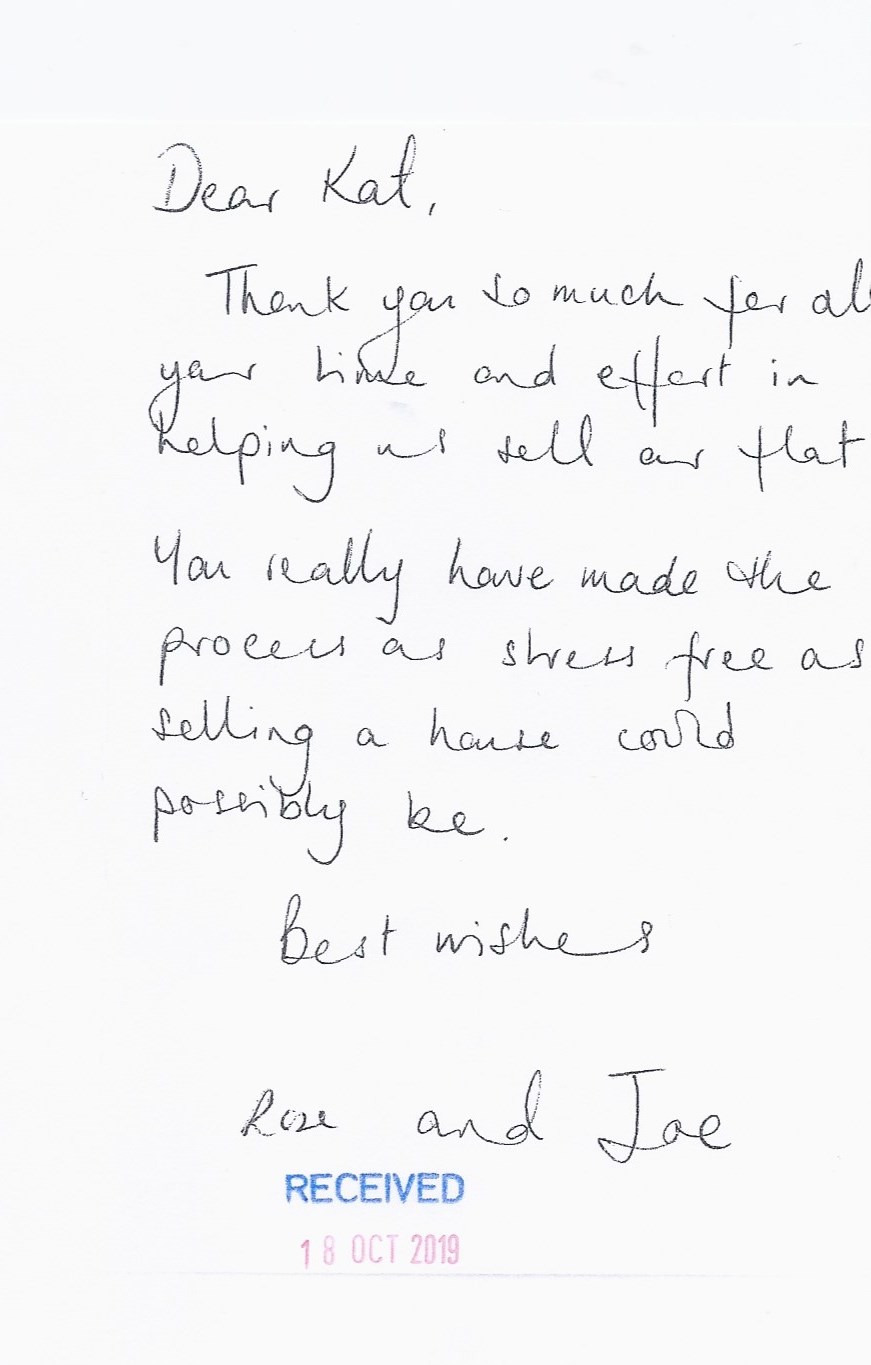 Dear Kat,
Thank you so much for all
your time and effort in
helping us sell our flat
You really have made the
process as stress free as
selling a house could
possibly be.
Best wishes
Rose and Joe
RECEIVED
18 OCT 2019